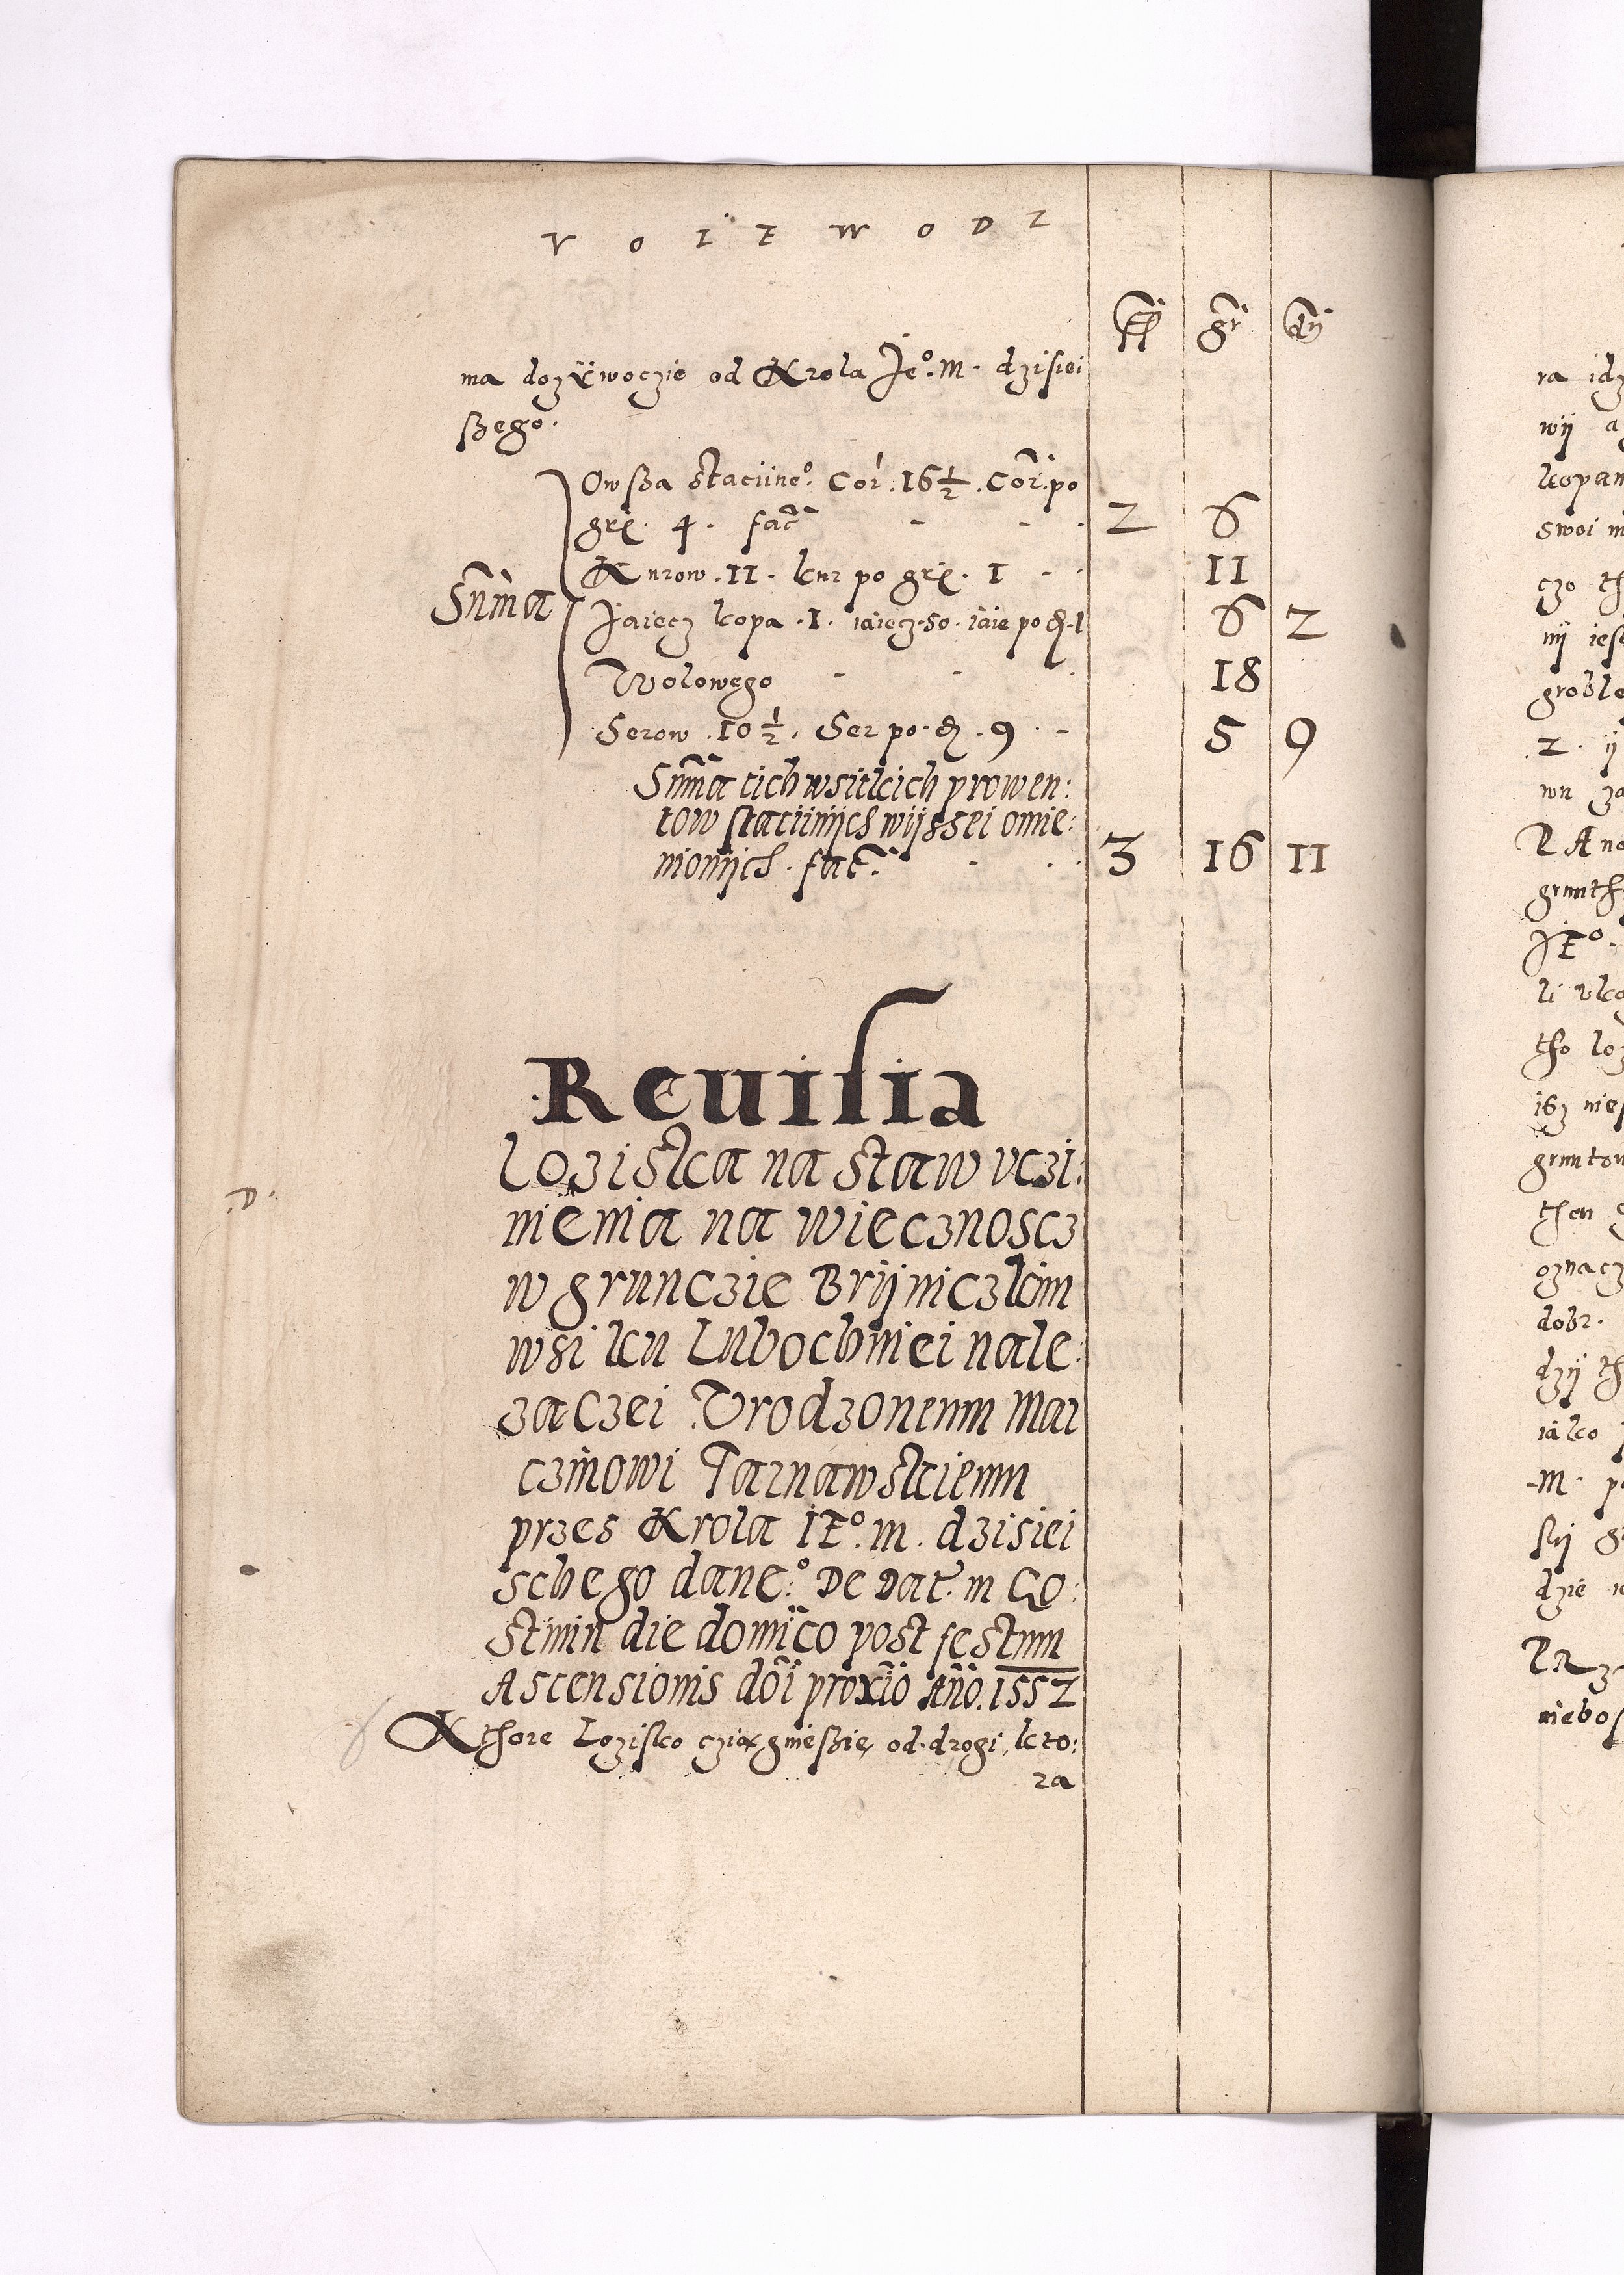 V O I E W O D Z
fl gr d
ma dozÿwoczie od Krola Je°. M. dzisiei
ßego.
Owßa staciine°. Cor. 16 1/2. Cor. po
gr. 4. fac̃ - - - 2 6
Kurow. 11. kur po gr. 1 - - 11
Sum̃a
Jaiecz kopa .1. iaiecz. 50. iaie po d. 1 6 2
Wolowego - - - 18
Serow .10 1/2. Ser po. d. 9. - 5 9
Sum̃a tich wsitkich prowen:
tow staciinijch wijssei omie:
nionijch. fac̃. - - - 3 16 11
Reuisia
Loziska na staw vczi:
nienia na wiecznoscz
w grunczie Brijniczkim
wsi ku Lubochniei nale:
zaczei Vrodzonemu Mar
czinowi Tarnawskiemu
przes Krola IE°. M. dzisiei
D:
schego dane:° De Dat. in Go:
stinin die domico post festum
Ascensionis doi proxio Ano. 1552
Kthore Lozisko cziągnießię od. drogi, kto:
ra
ra
wij
kopan
swoi
czo
nij
groble
.2. ij
wu
grunth
JE°.
li
tho
isz
gruntow
then
oznacz
dobr.
dzij
iako
M.
dzie
niebos